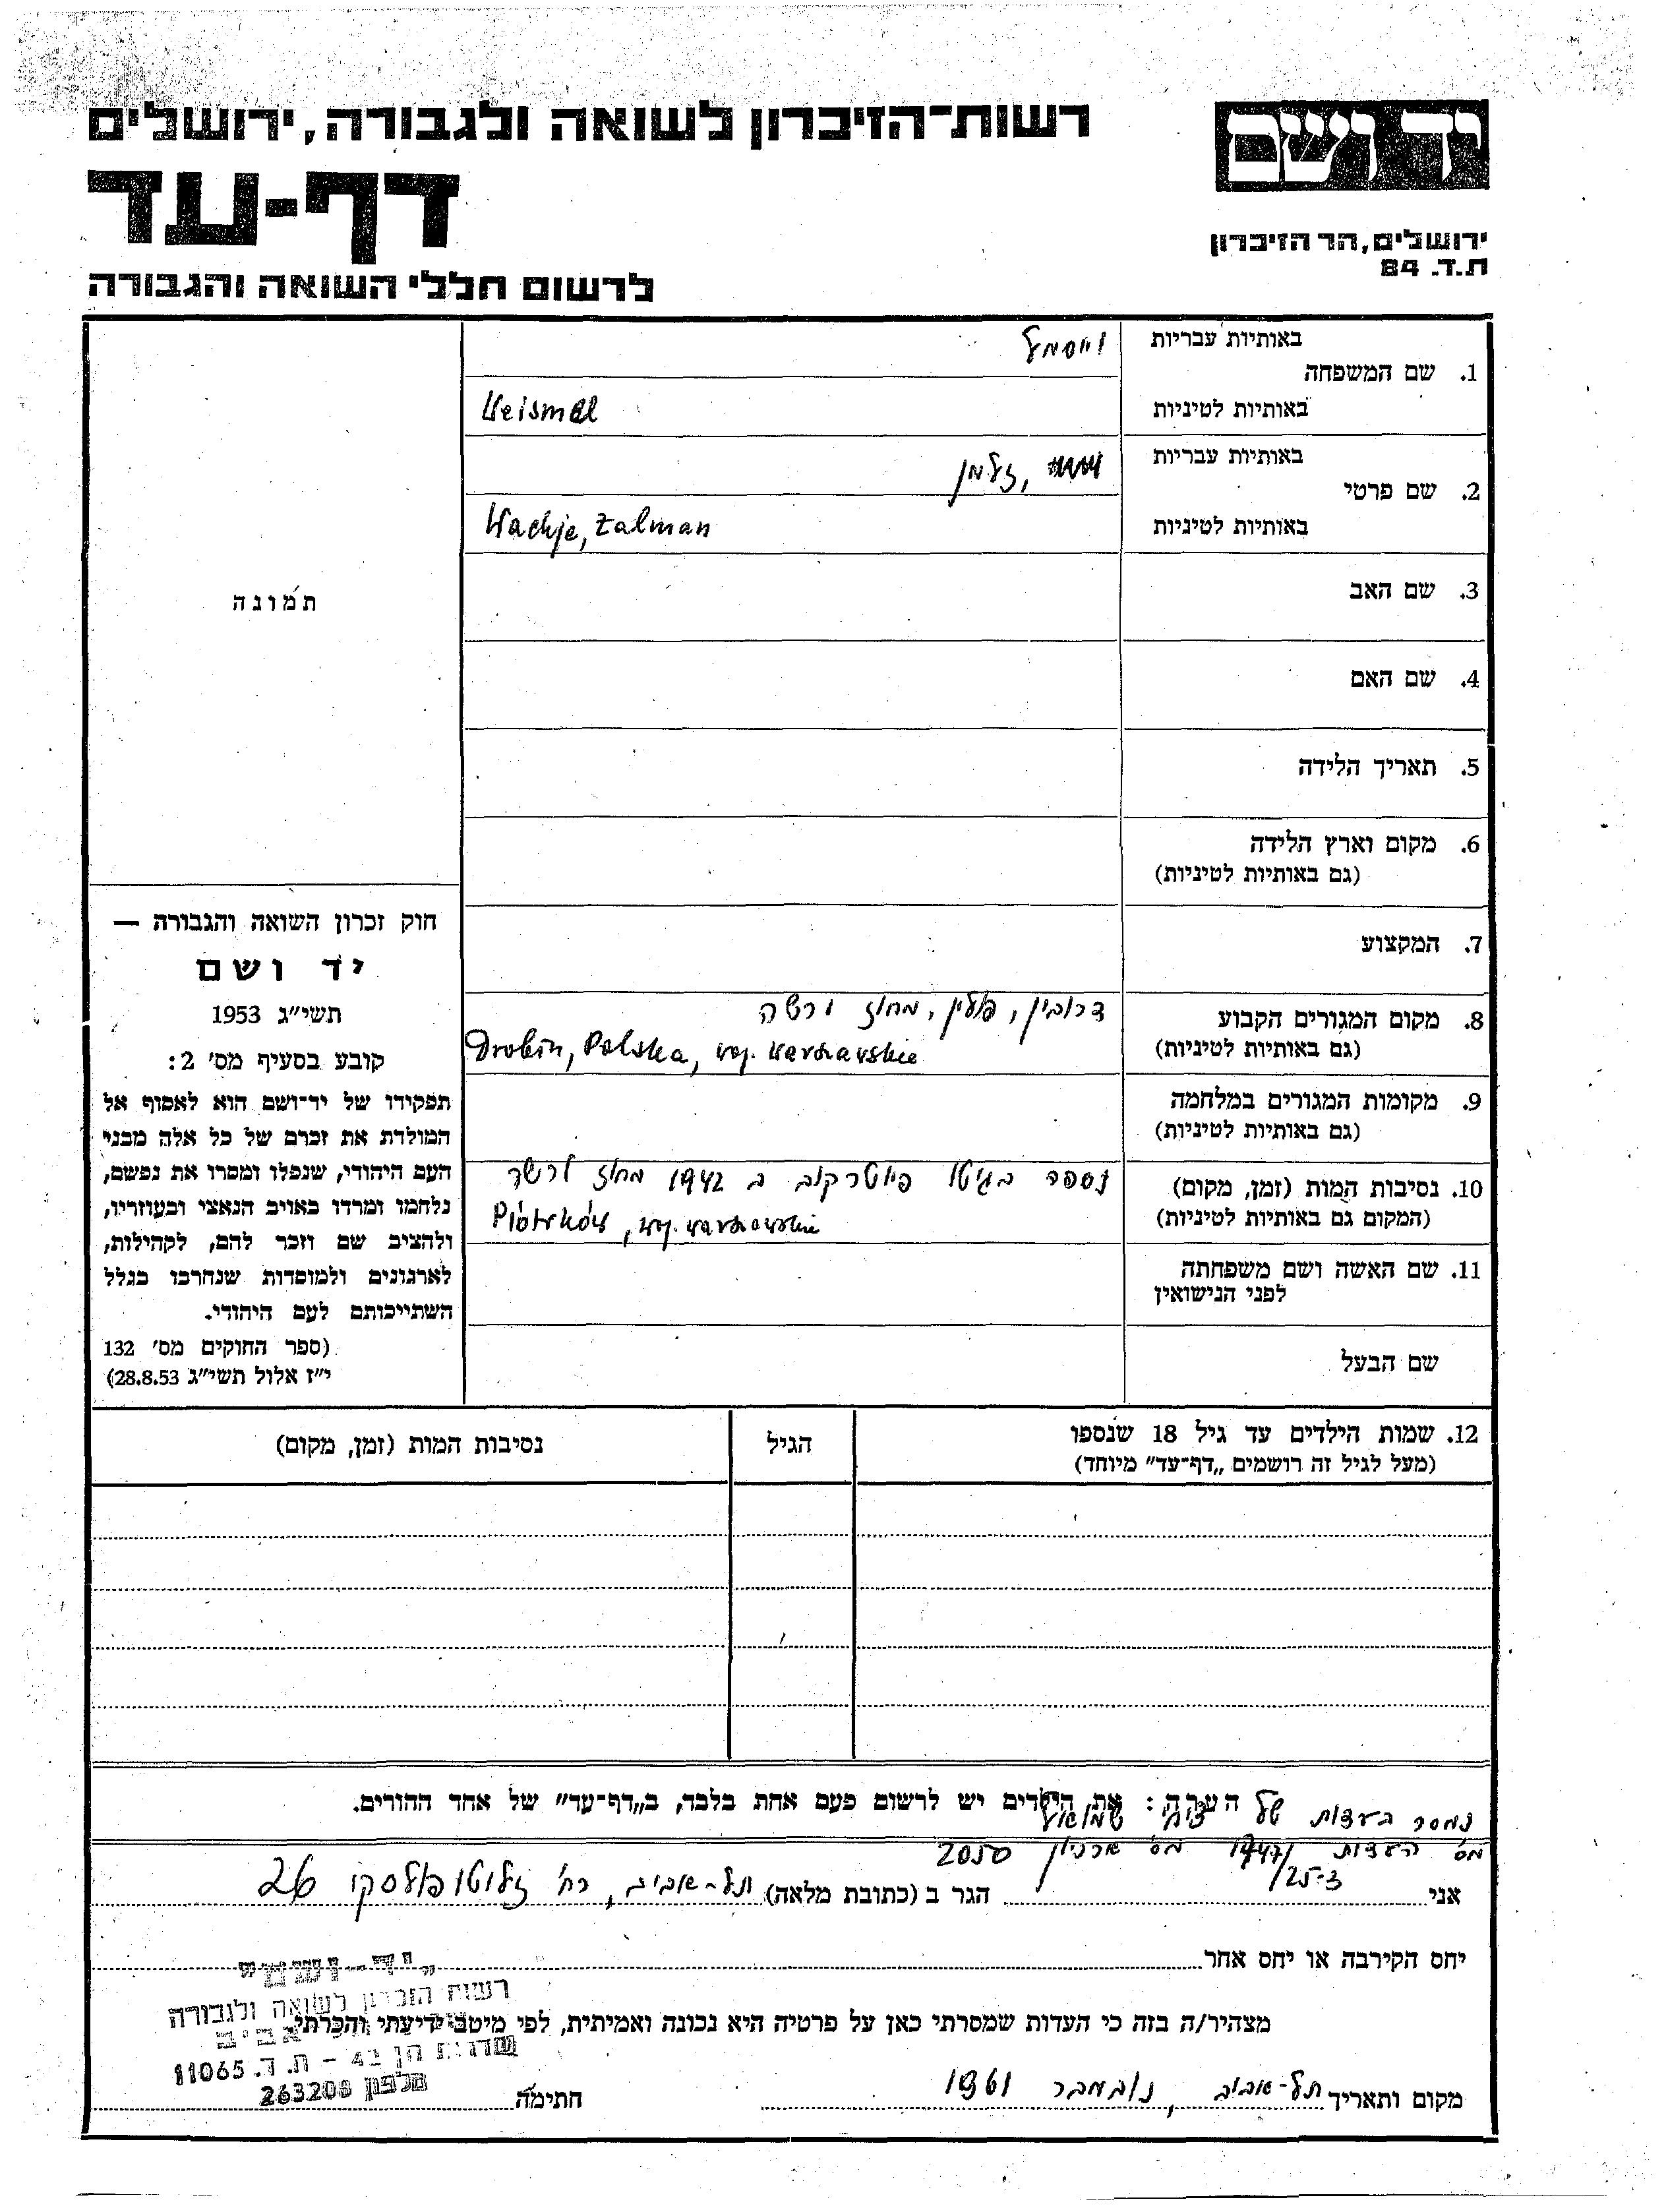 רשות־הזיכרון לשואה ולגבורה, ירושלים
יד ושם
דף-עד
ירושלים, הר הזיכרון
ת.ד. 84
לרשום חללי השואה והגבורה
באותיות עבריות
וייסמל
1. שם המשפחה
באותיות לטיניות
Weismel
באותיות עבריות
, זלמן
2. שם פרטי
באותיות לטיניות
Wachje, Zalman
תמונה
3. שם האב
4. שם האם
5. תאריך הלידה
6. מקום וארץ הלידה
(גם באותיות לטיניות)
7. המקצוע
8. מקום המגורים הקבוע
(גם באותיות לטיניות)
דרובין, פולין, מחוז ורשה
Drobin, Polska, woj. warszawskie
9. מקומות המגורים במלחמה
(גם באותיות לטיניות)
10. נסיבות המות (זמן, מקום)
(המקום גם באותיות לטיניות)
נספה בגיטו פיוטרקוב ב 1942 מחוז ורשה
Piotrków, woj. warszawskie
11. שם האשה ושם משפחתה
לפני הנישואין
שם הבעל
חוק זכרון השואה והגבורה —
יד ושם
תשי״ג 1953
קובע בסעיף מס׳ 2:
תפקידו של יד־ושם הוא לאסוף אל
המולדת את זכרם של כל אלה מבני
העם היהודי, שנפלו ומסרו את נפשם,
נלחמו ומרדו באויב הנאצי ובעוזריו,
ולהציב שם וזכר להם, לקהילות,
לארגונים ולמוסדות שנחרבו בגלל
השתייכותם לעם היהודי.
(ספר החוקים מס׳ 132
י״ז אלול תשי״ג 28.8.53)
12. שמות הילדים עד גיל 18 שנספו
(מעל לגיל זה רושמים „דף־עד״ מיוחד)
הגיל
נסיבות המות (זמן, מקום)
הערה: את הילדים יש לרשום פעם אחת בלבד, ב„דף־עד״ של אחד ההורים.
נמסר בעדות של שמואל
מס' העדות 1947/ מס' ארכיון 2050
25-3/
אני הגר ב (כתובת מלאה) תל-אביב, רח' זלוטופולסקי 26
יחס הקירבה או יחס אחר
מצהיר/ה בזה כי העדות שמסרתי כאן על פרטיה היא נכונה ואמיתית, לפי מיטב ידיעתי והכרתי.
„יד-ושם״
רשות הזכרון לשואה ולגבורה
שדרות חן 42 - ת. ד. 11065
טלפון 263208
מקום ותאריך תל-אביב, נובמבר 1961 חתימה